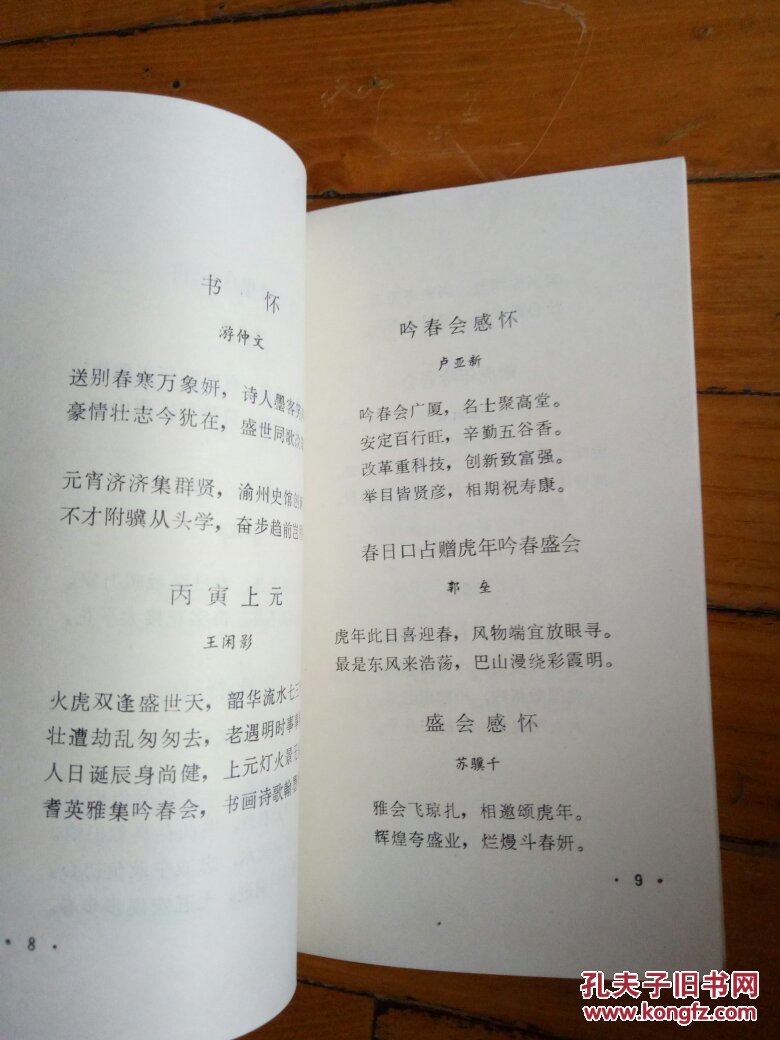 书怀
游仲文
送别春寒万象妍，诗人墨客
豪情壮志今犹在，盛世同歌
元宵济济集群贤，渝州史馆
不才附骥从头学，奋步趋前岂
丙寅上元
王闲影
火虎双逢盛世天，韶华流水七
壮遭劫乱匆匆去，老遇明时事
人日诞辰身尚健，上元灯火景
耆英雅集吟春会，书画诗歌翰
·8·
吟春会感怀
卢亚新
吟春会广厦，名士聚高堂。
安定百行旺，辛勤五谷香。
改革重科技，创新致富强。
举目皆贤彦，相期祝寿康。
春日口占赠虎年吟春盛会
郭垒
虎年此日喜迎春，风物端宜放眼寻。
最是东风来浩荡，巴山漫绕彩霞明。
盛会感怀
苏骥千
雅会飞琼扎，相邀颂虎年。
辉煌夸盛业，烂熳斗春妍。
·9·
孔夫子旧书网
www.kongfz.com